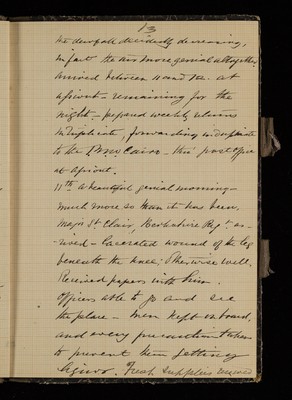 13
the downfall decidedly decreasing,
in fact the air more genial altogether
arrived between 11 and 12. at
Assiout - remaining for the
night - prepared weekly returns
in duplicate, forwarding in duplicate
to the P.M.O. Cairo - this post office
at Assiout.
11th a beautiful genial morning -
much more so than it has been.
Major St Clair, Regt ar-
rived - lacerated wound of the leg
beneath the knee. Otherwise well.
Received papers with him.
Officers able to go and see
the place - men kept on board,
and every precaution taken
to prevent them getting
liquor. Fresh supplies received